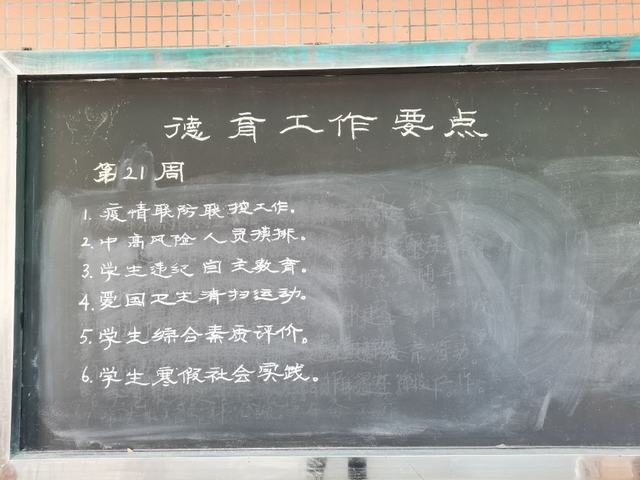 德育工作要点
第21周
1. 疫情联防联控工作。
2. 中高风险人员摸排。
3. 学生违纪自主教育。
4. 爱国卫生清扫运动。
5. 学生综合素质评价。
6. 学生寒假社会实践。